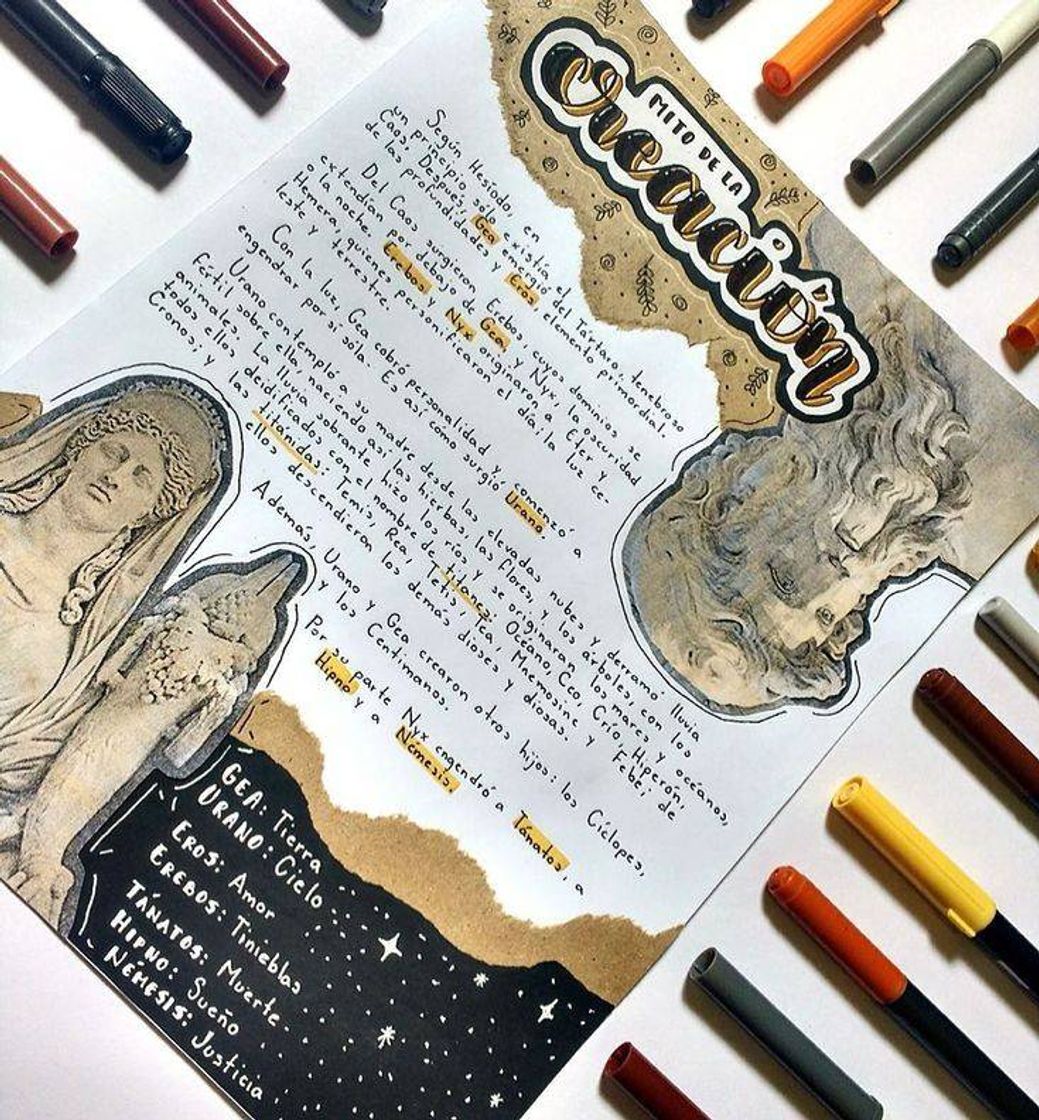 MITO DE LA
Creación
Según Hesíodo, en
un principio sólo existía
Caos. Después, Gea emergió del Tártaro, tenebroso
de las profundidades y Eros, elemento primordial.
Del Caos surgieron Erebo, cuyos dominios se
extendían por debajo de Gea y Nyx, la oscuridad
o la noche. Erebos y Nyx originaron a Eter y
Hemera, quienes personificaron el día, la luz ce-
leste y terrestre.
Con la luz, Gea cobró personalidad y comenzó a
engendrar por sí sola. Es así como surgió Urano
Urano contempló a su madre desde las elevadas nubes y derramó lluvia
fértil sobre ella, naciendo así las hierbas, las flores y los árboles, con los
animales. La lluvia sobrante hizo los ríos y se originaron los mares y océanos,
todos ellos deidificados con el nombre de titanes: Océano, Ceo, Crío, Hiperón,
Cronos, y las titánidas: Temis, Rea, Tetis, Tea, Mnemosine y Febe; de
ellos descendieron los demás dioses y diosas.
Además, Urano y Gea crearon otros hijos: los Cíclopes,
y los Centimanos.
Por su parte Nyx engendró a Tánatos, a
Hipno y a Némesis.
GEA: Tierra
URANO: Cielo
EROS: Amor
EREBOS: Tinieblas
TÁNATOS: Muerte
HIPNO: Sueño
NÉMESIS: Justicia